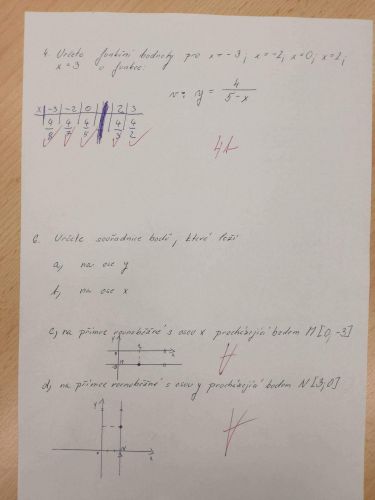 4. Určete funkční hodnoty pro x=-3; x=-2; x=0; x=2;
x=3 u funkce:
y = 4/(5-x)
x -3 -2 0 2 3
4/8 4/7 4/5 4/3 4/2
6. Určete souřadnice bodů, které leží
a, na ose y
b, na ose x
c, na přímce rovnoběžné s osou x procházející bodem M[0,-3]
d, na přímce rovnoběžné s osou y procházející bodem N[3,0]